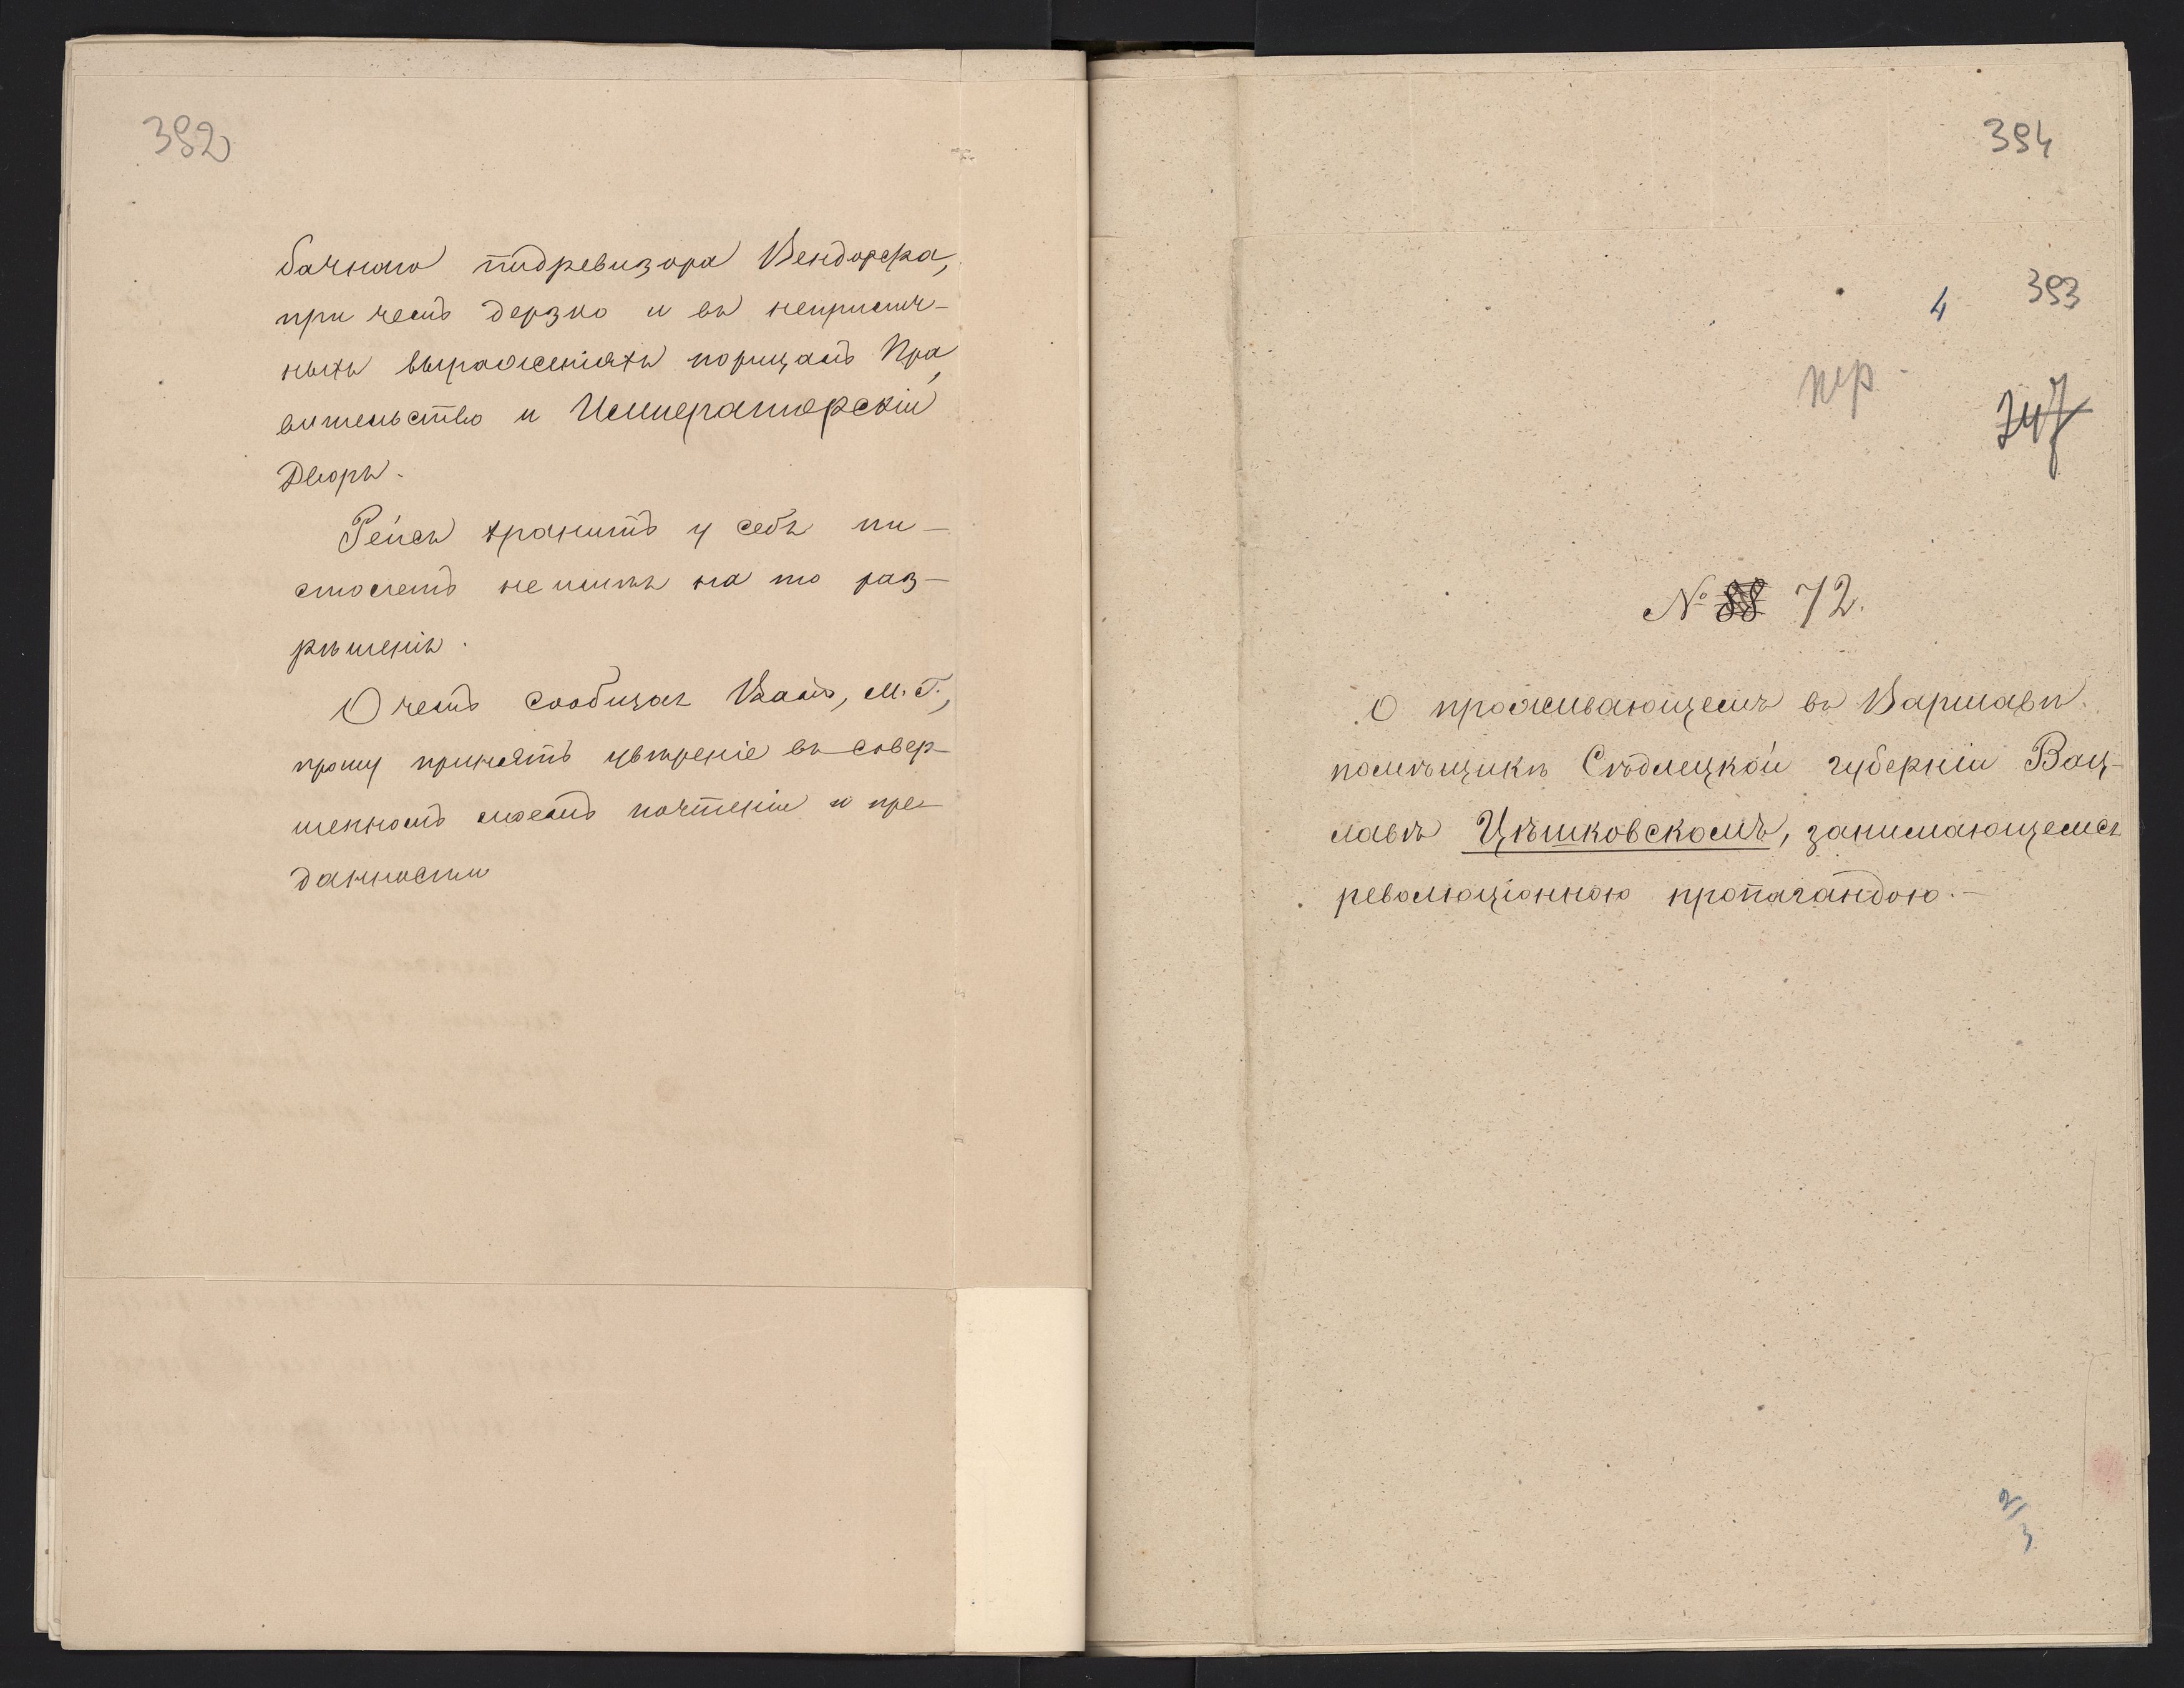 392
бачнаго подревизора Вендорфа,
при чемъ дерзко и въ неприлич-
ныхъ выраженіяхъ порицалъ Пра
вительство и Императорскій
Дворъ.
Рейсъ хранитъ у себя пи-
столетъ не имѣя на то раз-
рѣшенія.
О чемъ сообщая Вамъ, М. Г.,
прошу принять увѣреніе въ совер-
шенномъ моемъ почтеніи и пре-
данности
394
393
4
пр
747
№ 88 72.
О проживающемъ въ Варшавѣ
помѣщикѣ Сѣдлецкой губерніи Вац-
лавѣ Цѣшковскомъ, занимающемся
революціонною пропагандою.-
2/3